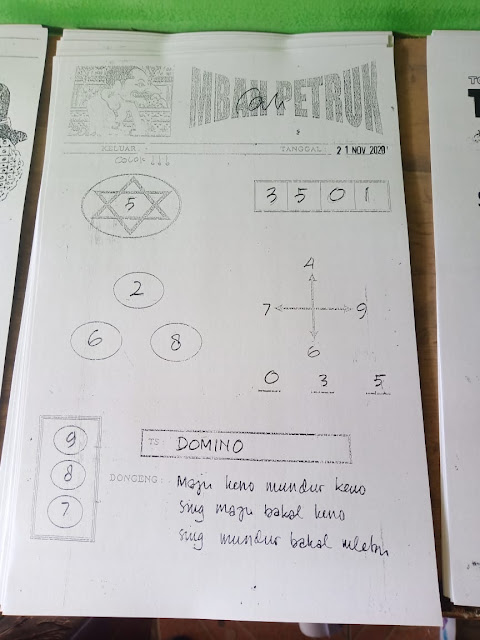 MBAH PETRUK
KELUAR : TANGGAL : 21 NOV 2020
COLOK ↓↓↓
5
3 5 0 1
2
6 8
4
7 9
6
0 3 5
9
8
7
TS : DOMINO
DONGENG : Maju keno mundur keno
Sing maju bakal keno
Sing mundur bakal mlebu